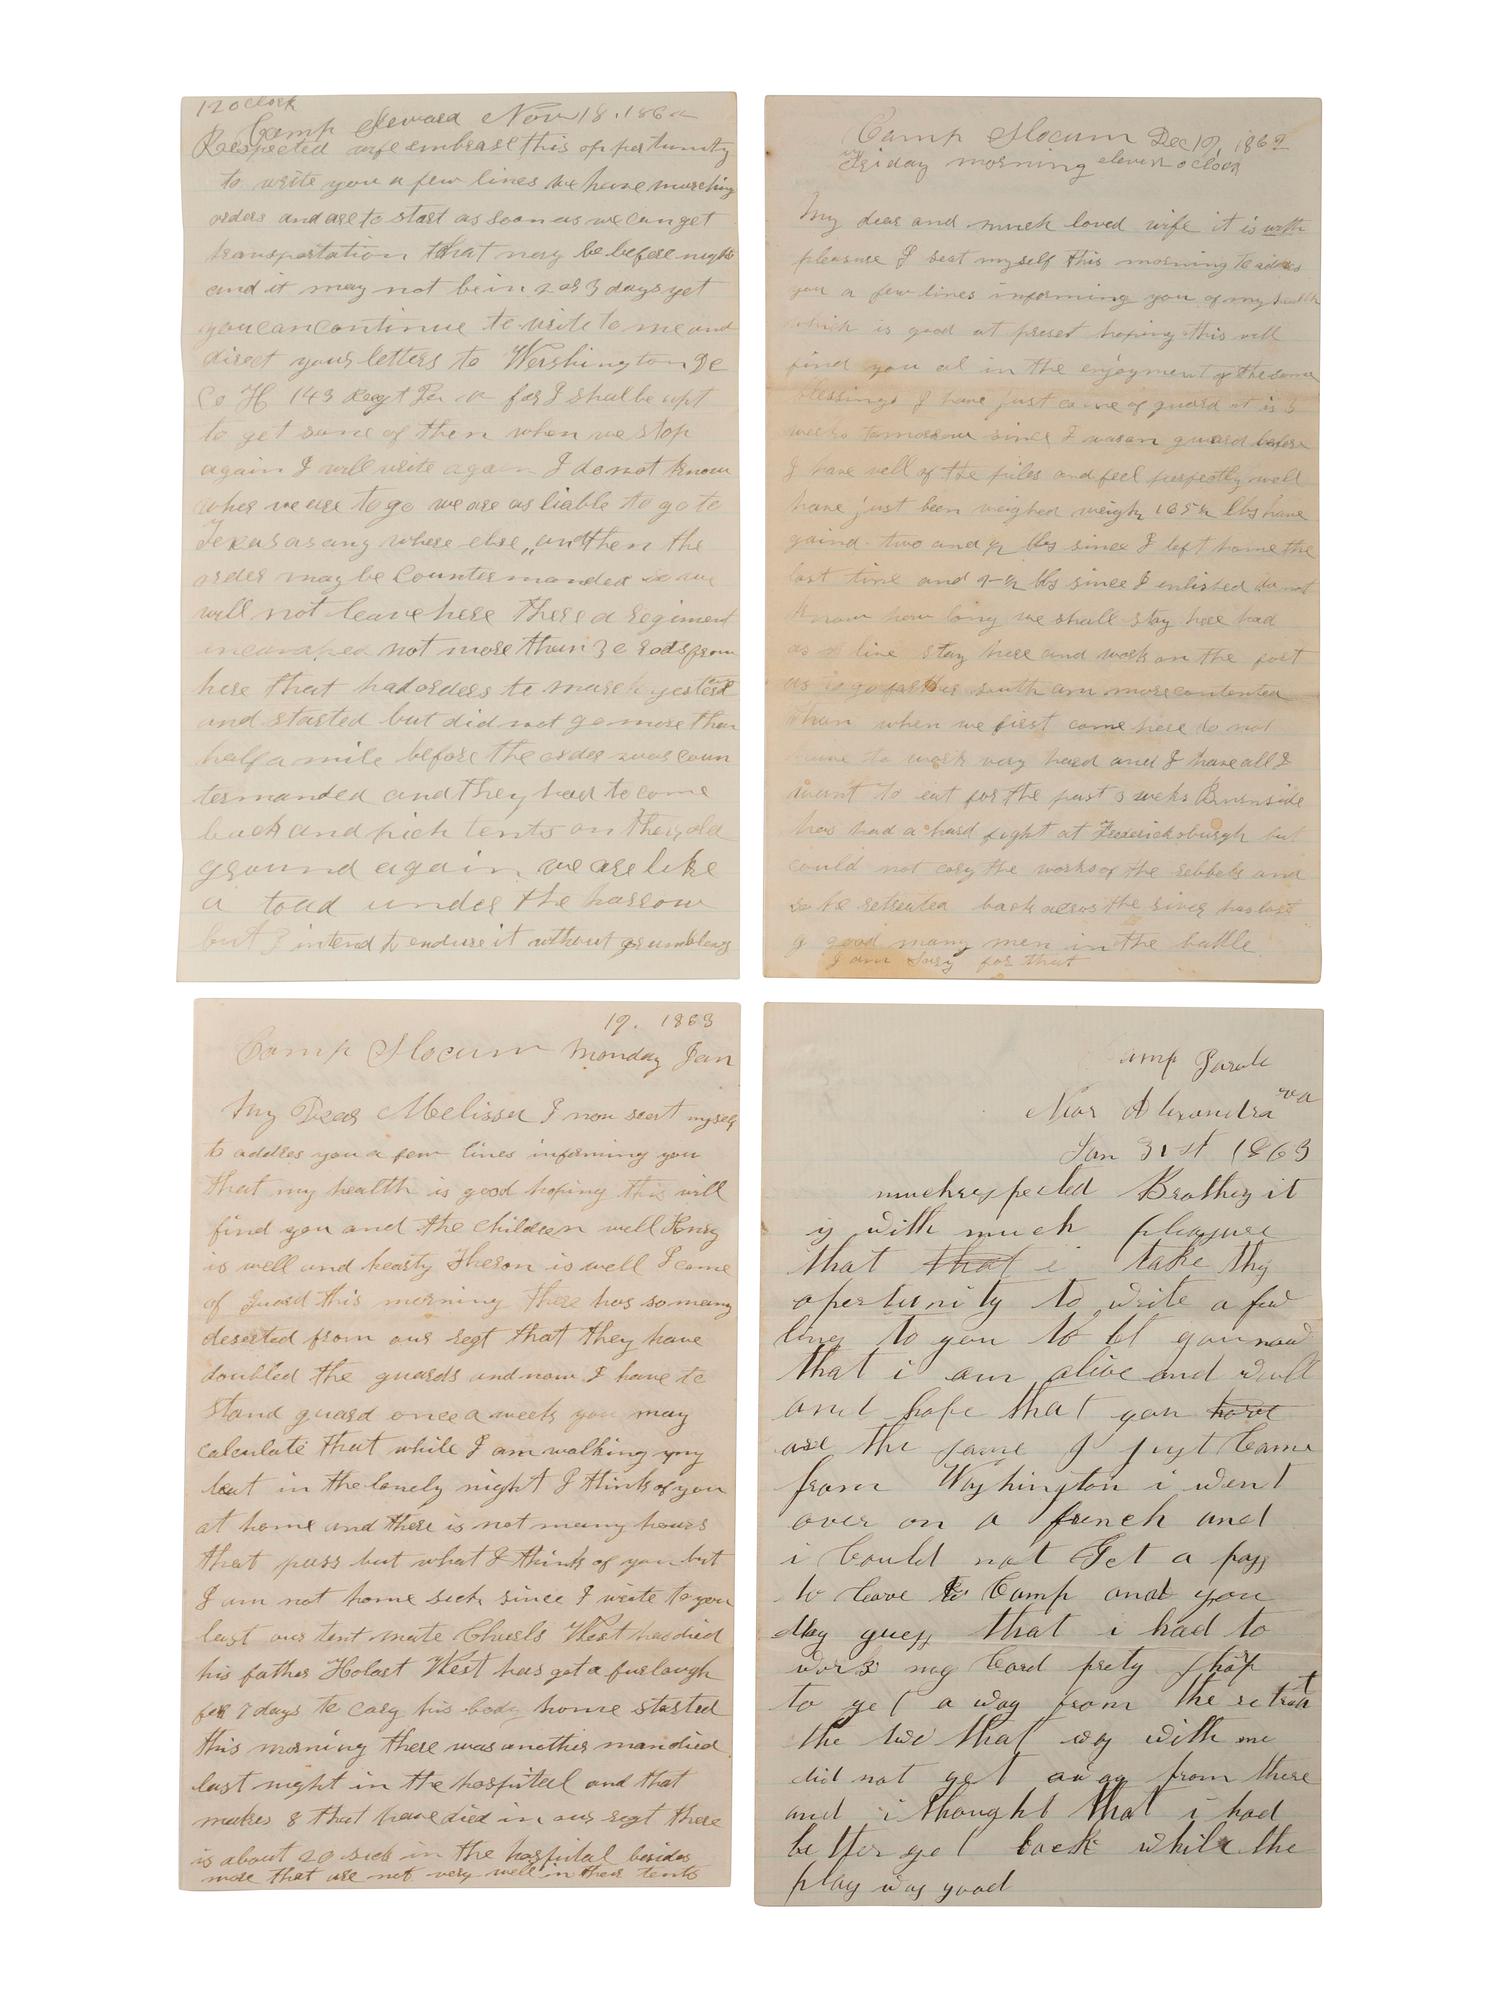 12 o clock
Camp Seward Nov 18. 1862
Respected wife embrase this oppertunity
to write you a few lines we have marching
orders and are to start as soon as we can get
transportation that may be before night
and it may not be in 2 or 3 days yet
you can continue to write to me and
direct yours letters to Wershington DC
Co H 143 Regt for I shal be apt
to get some of them when we stop
again I will write again I do not know
wher we are to go we are as liable to go to
Texas as any where else, and then the
order may be Countermanded so we
will not leave here there a regiment
incamped not more than 30 rods from
here that had orders to march yesterd
and started but did not go more than
half a mile before the order was coun
termanded and they had to come
back and pich tents on they old
ground again we are like
a toad under the harrow
but I intend to endure it without grumbleing
Camp Slocum Dec 19, 1862
Friday morning eleven o clock
My dear and much loved wife it is with
pleasure I seat myself this morning to adress
you a few lines informing you of my health
which is good at preset hoping this will
find you al in the enjoyment of the same
blessings I have just came of guard it is 3
weeks tomorrow since I was on guard before
I have well of the piles and feel perfectly well
have just been weighed weigh 165 ½ lbs have
gaind two and ½ lbs since I left home the
last time and 4 ½ lbs since I enlisted do not
know how long we shall stay here had
as live stay here and work on the fort
as to go farther south am more contented
than when we first come here do not
have to work very hard and I have all I
want to eat for the past 3 weeks Burnside
has had a hard fight at Fredericksburgh but
could not cary the works of the rebbels and
so he retreated back acros the river has lost
a good many men in the battle
I am Sory for that
19. 1863
Camp Slocum Monday Jan
My Dear Melissa I now seat myself
to addres you a few lines informing you
that my health is good hoping this will
find you and the children well Henry
is well and hearty Theron is well I came
of guard this morning there has so many
deserted from our regt that they have
doubled the guards and now I have to
stand guard once a week you may
calculate that while I am walking my
beat in the lonely night I think of you
at home and there is not many hours
that pass but what I think of you but
I am not home sick since I write to you
last our tent mate Charls West has died
his father Holast West has got a furlough
for 7 days to cary his body home started
this morning there was another man died
last night in the hospital and that
makes 8 that have died in our regt there
is about 20 sick in the hospital besides
more that are not very well in their tents
Camp Parole
Near Alexandra va
Jan 31st 1863
much respected Brother it
is with much pleasure
that that i take this
opertunity to write a few
lines to you to let you now
that i am alive and well
and hope that you have
are the same I just Came
from Washington i went
over on a french and
i Could not Get a pass
to leave to Camp and you
May guess that i had to
work my Card prety sharp
to get a way from the retreat
the two that was with me
did not get away from there
and i thought that i had
better get back while the
play was good